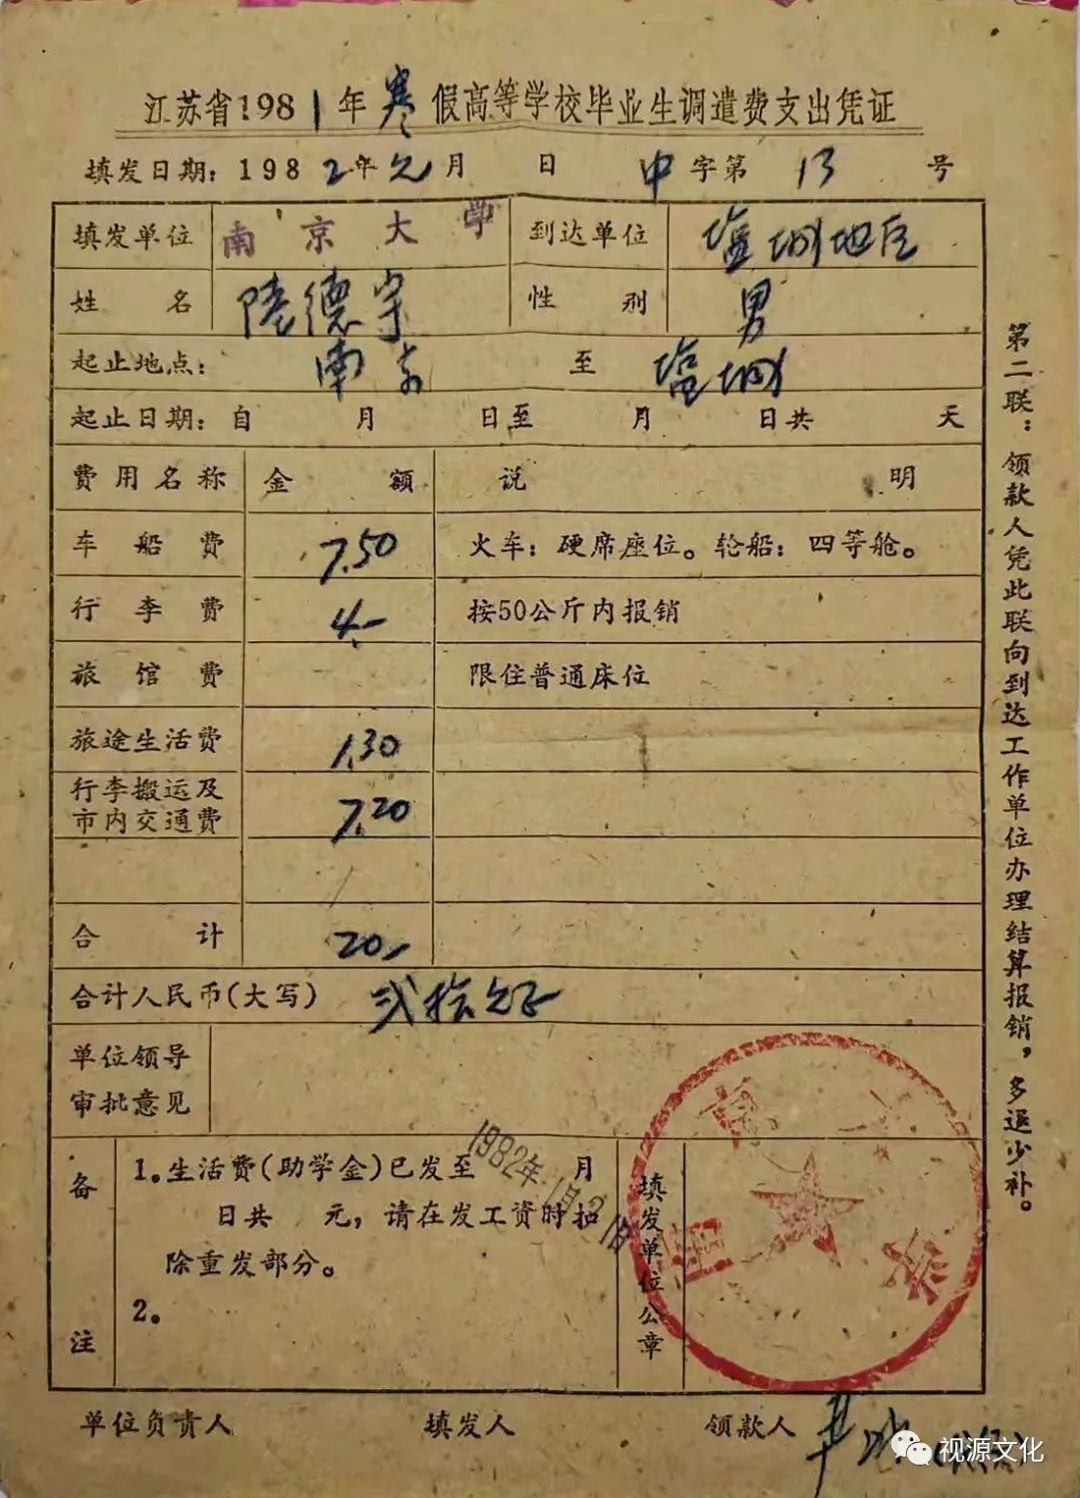 江苏省1981年寒假高等学校毕业生调遣费支出凭证
填发日期：1982年元月 日 中字第13号
填发单位 南京大学 到达单位 塩城地区
姓名 陸德宇 性别 男
起止地点： 南京 至 塩城
起止日期：自 月 日至 月 日共 天
费用名称 金额 说明
车船费 7.50 火车：硬席座位。轮船：四等舱。
行李费 4.- 按50公斤内报销
旅馆费 限住普通床位
旅途生活费 1.30
行李搬运及
市内交通费 7.20
合计 20.-
合计人民币(大写) 弍拾元正
单位领导
审批意见
备注
1。生活费(助学金)已发至 月
日共 元，请在发工资时扣
除重发部分。
2。
1982年1月
填发单位公章
南京大学
单位负责人 填发人 领款人
第二联：领款人凭此联向到达工作单位办理结算报销，多退少补。
视源文化